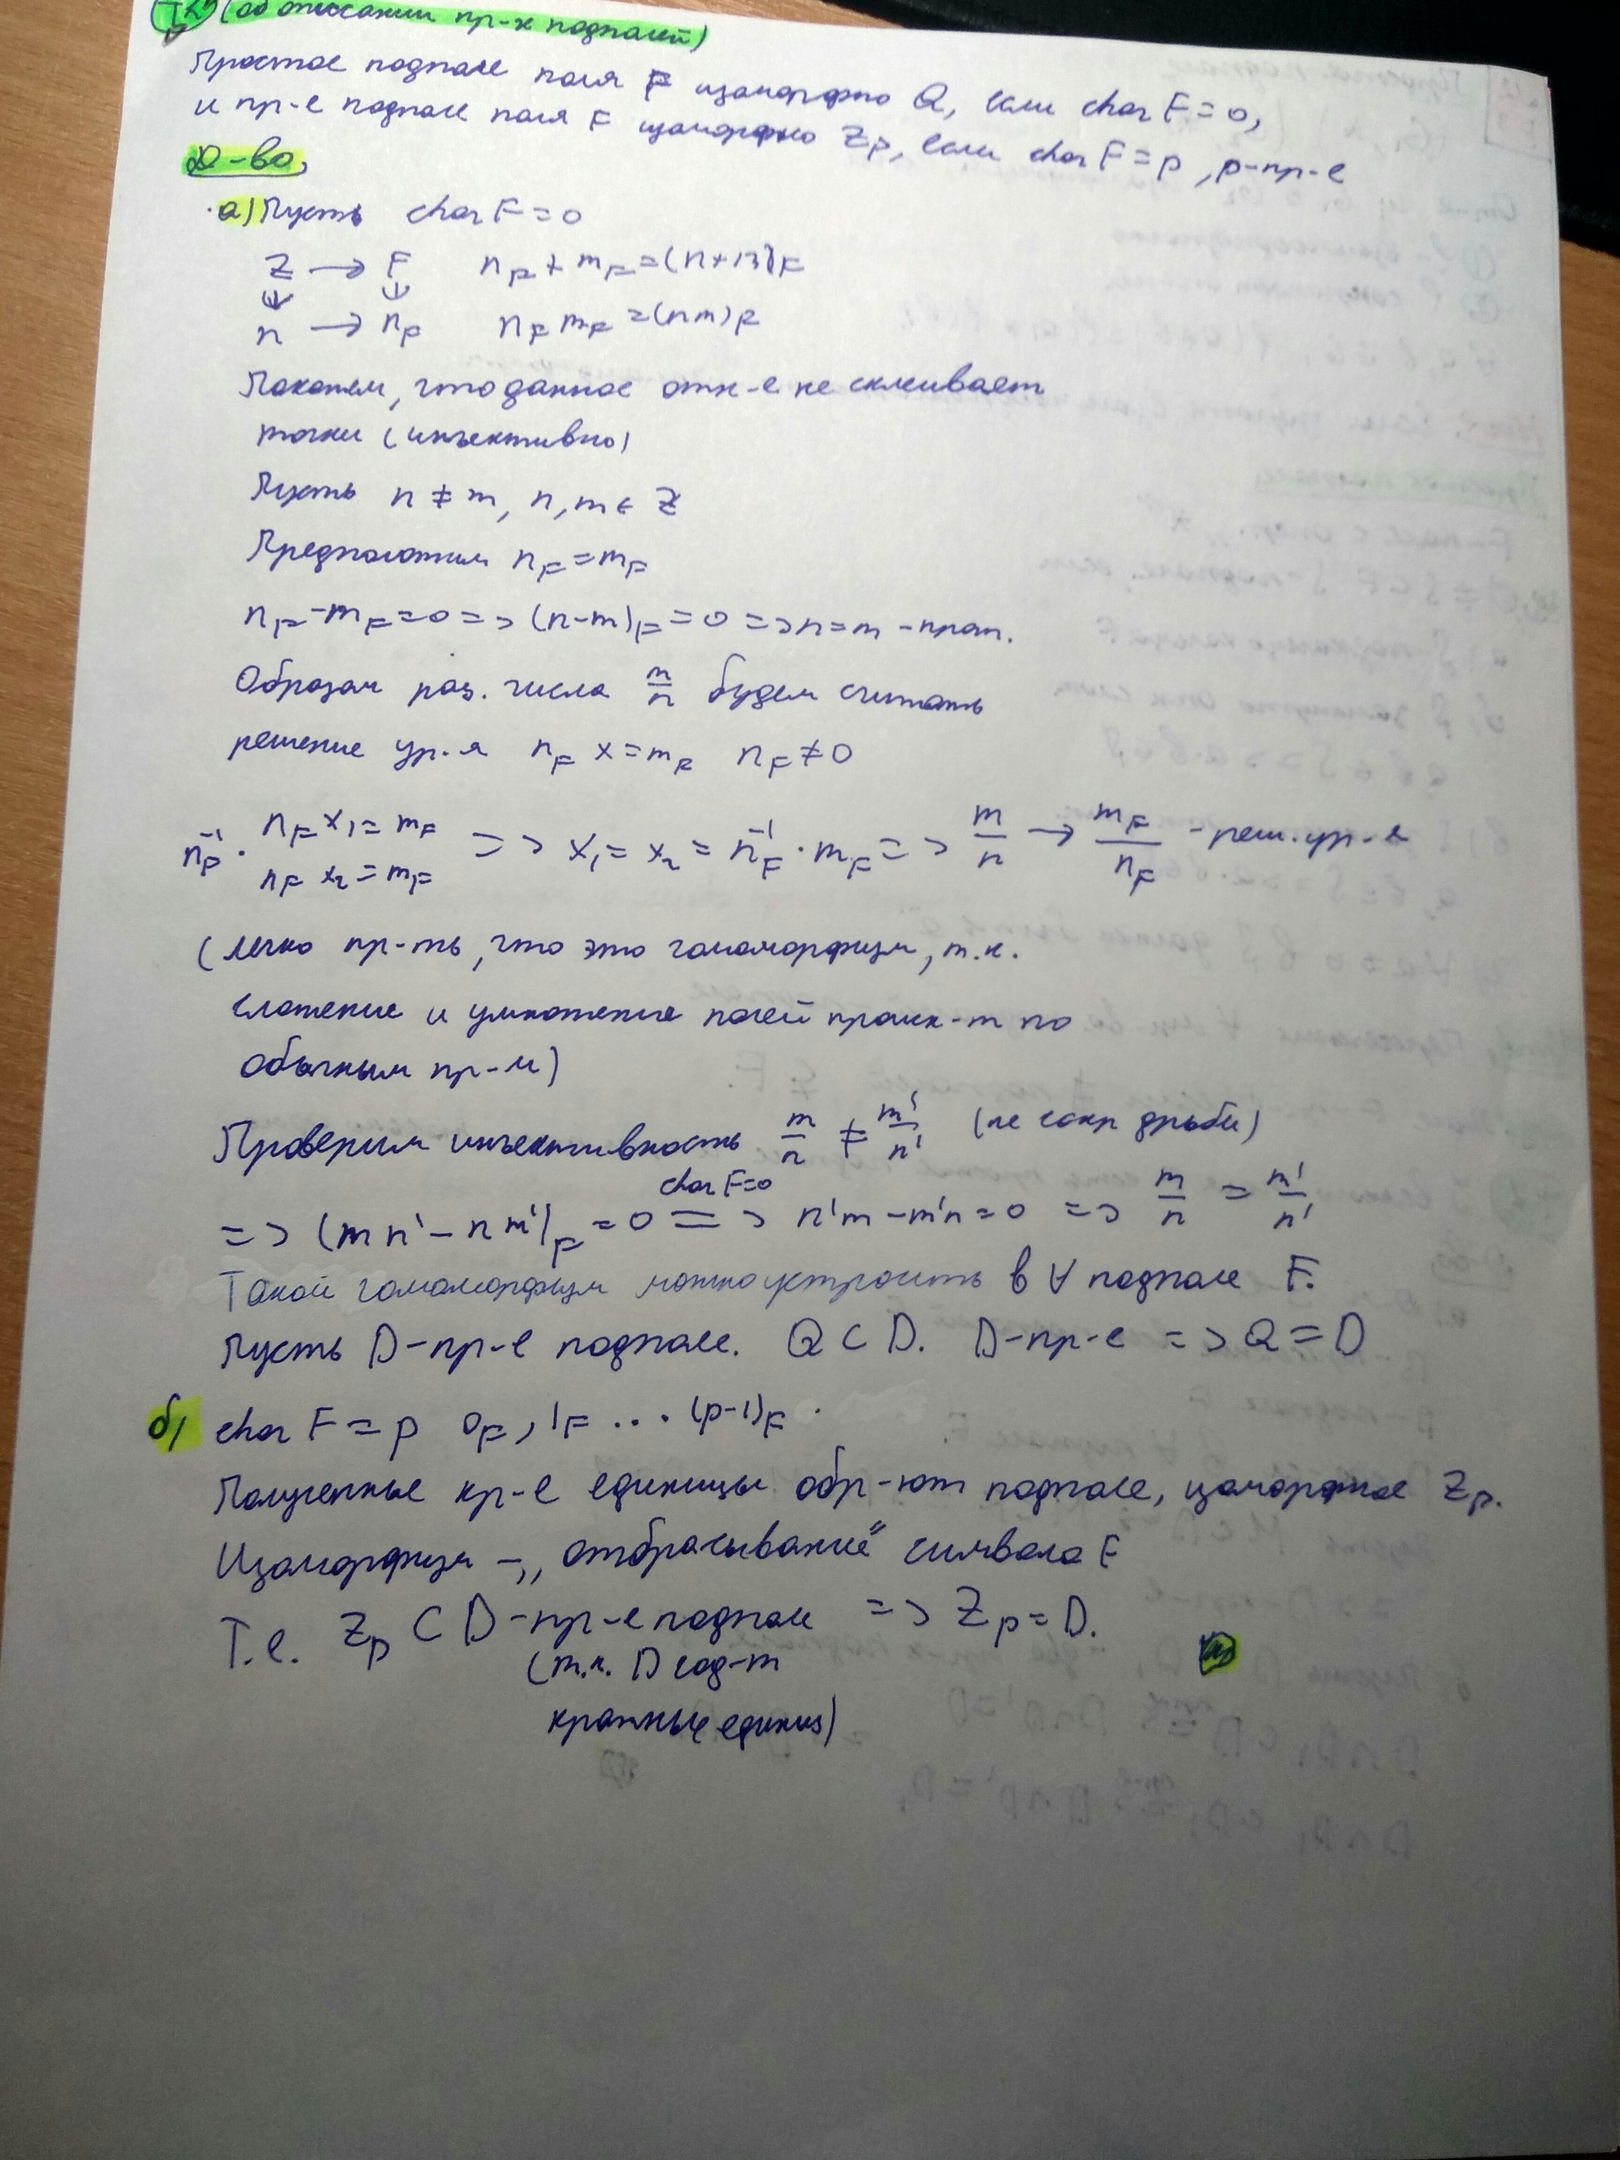 Т2 (об описании пр-х подполей)
Простое подполе поля F изоморфно Q, если char F = 0,
и пр-е подполе поля F изоморфно Zp, если char F = p, p-пр-е
Д-во,
а) Пусть char F = 0
Z → F   n_F + m_F = (n+m)_F
n → n_F   n_F m_F = (nm)_F
Покажем, что данное отн-е не склеивает
точки (инъективно)
Пусть n ≠ m, n, m ∈ Z
Предположим n_F = m_F
n_F - m_F = 0 => (n-m)_F = 0 => n = m - прот.
Образом рац. числа m/n будем считать
решение ур-я n_F x = m_F   n_F ≠ 0
n_F^{-1} · n_F x_1 = m_F
n_F x_2 = m_F => x_1 = x_2 = n_F^{-1} · m_F => m/n → m_F/n_F - реш. ур-я
(легко пр-ть, что это гомоморфизм, т.к.
сложение и умножение полей происх-т по
обычным пр-м)
Проверим инъективность m/n ≠ m'/n' (не сокр дроби)
=> (mn' - nm')_F = 0 =char F=0=> n'm - m'n = 0 => m/n = m'/n'
Такой гомоморфизм можно устроить в ∀ подполе F.
Пусть D-пр-е подполе. Q ⊂ D. D-пр-е => Q = D
б) char F = p   0_F, 1_F ... (p-1)_F.
Полученные кр-е единицы обр-ют подполе, изоморфное Zp.
Изоморфизм - „отбрасывание" символа F
Т.е. Zp ⊂ D-пр-е подполе => Zp = D.
(т.к. D сод-т
кратные единиц)